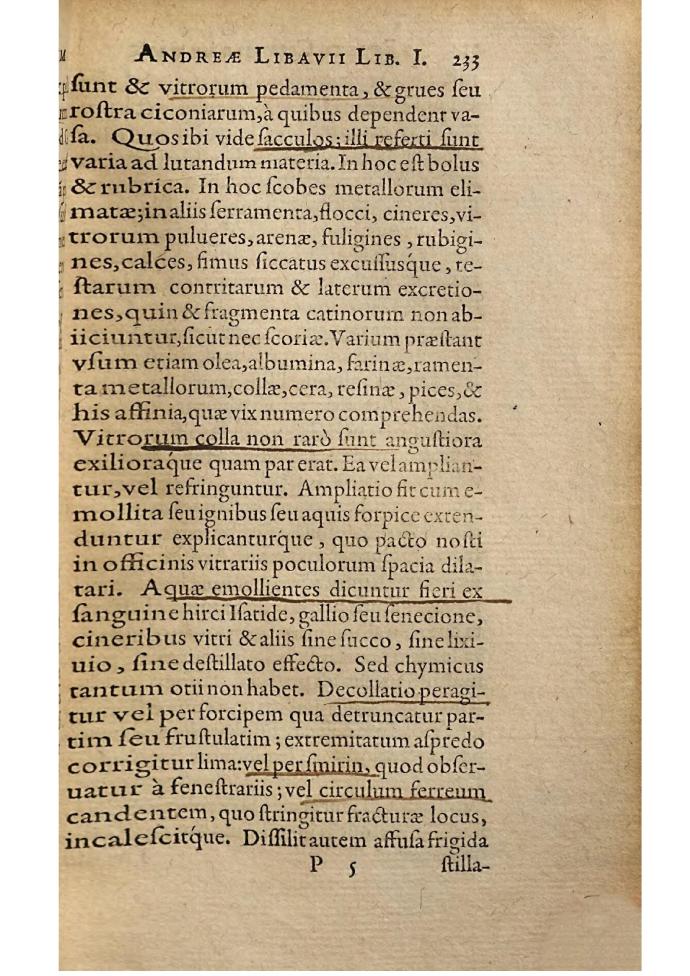 ANDREÆ LIBAVII LIB. I. 233
ſunt & vitrorum pedamenta, & grues ſeu
roſtra ciconiarum, à quibus dependent va-
ſa. Quos ibi vide ſacculos; illi referti ſunt
varia ad lutandum materia. In hoc eſt bolus
& rubrica. In hoc ſcobes metallorum eli-
matæ; in aliis ferramenta, flocci, cineres, vi-
trorum pulueres, arenæ, fuligines, rubigi-
nes, calces, fimus ſiccatus excuſſuſq́ue, te-
ſtarum contritarum & laterum excretio-
nes, quin & fragmenta catinorum non ab-
iiciuntur, ſicut nec ſcoriæ. Varium præſtant
vſum etiam olea, albumina, farinæ, ramen-
ta metallorum, collæ, cera, reſinæ, pices, &
his affinia, quæ vix numero comprehendas.
Vitrorum colla non rarò ſunt anguſtiora
exilioraq́ue quam par erat. Ea vel amplian-
tur, vel refringuntur. Ampliatio fit cum e-
mollita ſeu ignibus ſeu aquis forpice exten-
duntur explicanturq́ue, quo pacto noſti
in officinis vitrariis poculorum ſpacia dila-
tari. Aquæ emollientes dicuntur fieri ex
ſanguine hirci Iſatide, gallio ſeu ſenecione,
cineribus vitri & aliis ſine ſucco, ſine lixi-
uio, ſine deſtillato effecto. Sed chymicus
tantum otii non habet. Decollatio peragi-
tur vel per forcipem qua detruncatur par-
tim ſeu fruſtulatim; extremitatum aſpredo
corrigitur lima: vel per ſmirin, quod obſer-
uatur à feneſtrariis; vel circulum ferreum
candentem, quo ſtringitur fracturæ locus,
incaleſcitq́ue. Diſſilit autem affuſa frigida
P 5 ſtilla-